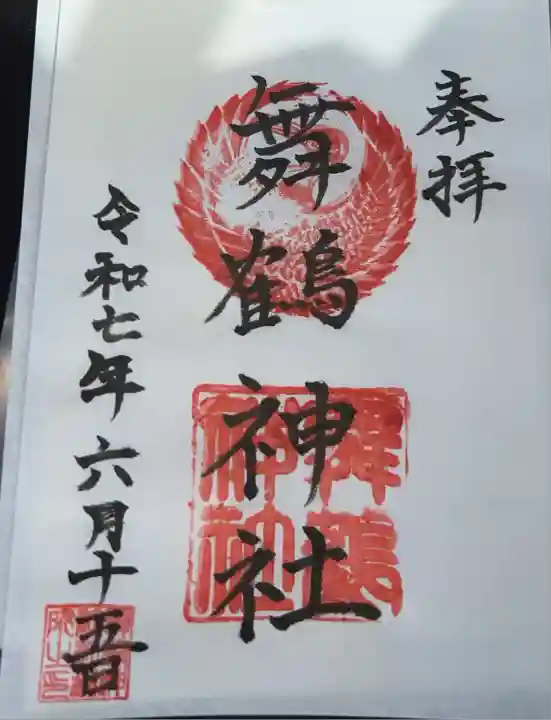 奉拝
舞鶴神社
舞鶴神社
令和七年六月十五日